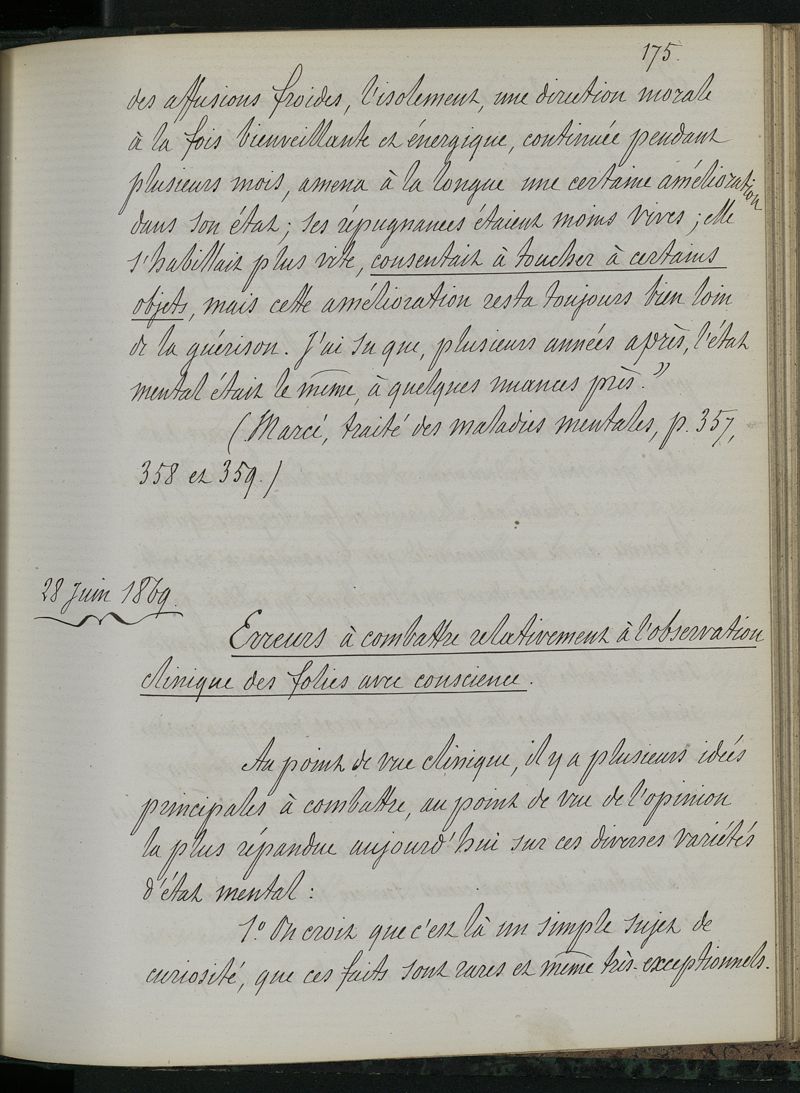 175.
des affusions froides, l'isolement, une direction morale
à la fois bienveillante et énergique, continuée pendant
plusieurs mois, amena à la longue une certaine amélioration
dans son état ; ses répugnances étaient moins vives ; elle
s'habillait plus vite, consentait à toucher à certains
objets, mais cette amélioration resta toujours bien loin
de la guérison. J'ai su que, plusieurs années après, l'état
mental était le même, à quelques nuances près."
(Marcé, traité des maladies mentales, p. 357,
358 et 359.)
28 Juin 1869.
Erreurs à combattre relativement à l'observation
clinique des folies avec conscience.
Au point de vue clinique, il y a plusieurs idées
principales à combattre, au point de vue de l'opinion
la plus répandue aujourd'hui sur ces diverses variétés
d'état mental :
1.° On croit que c'est là un simple sujet de
curiosité, que ces faits sont rares et même très-exceptionnels.